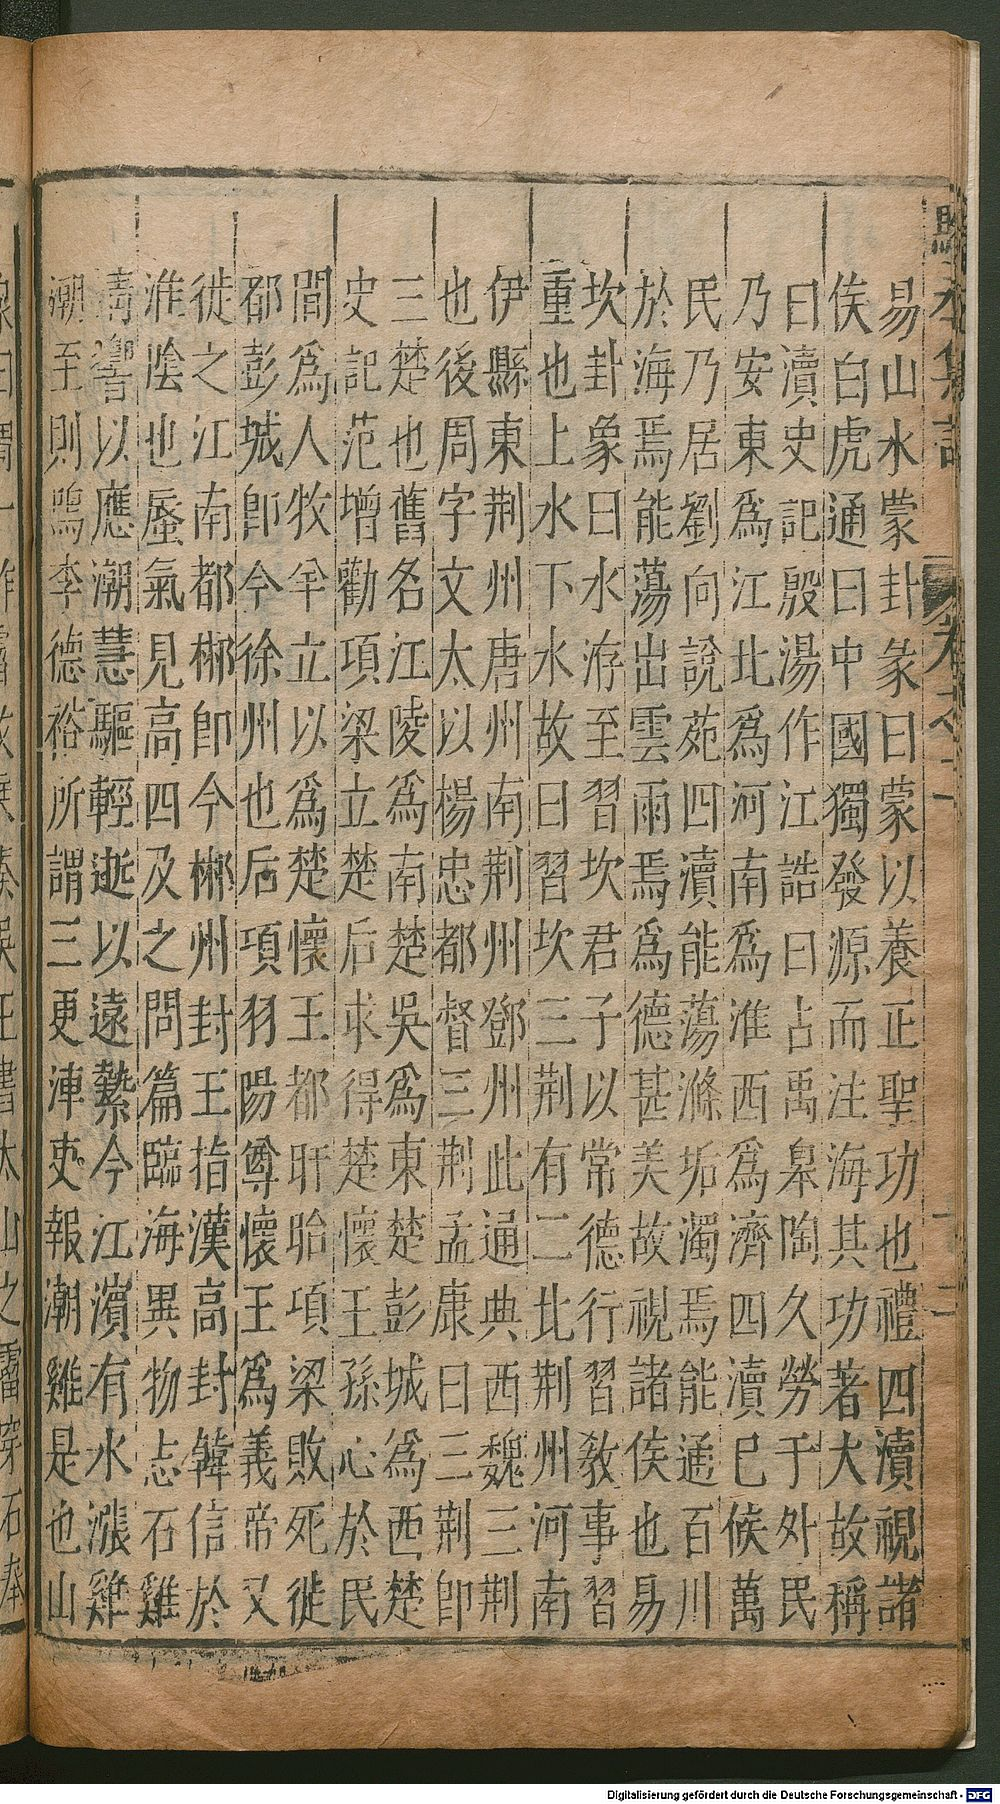 易山水蒙卦彖曰蒙以養正聖功也禮四瀆視諸
侯白虎通曰中國獨發源而注海其功著大故稱
曰瀆史記殷湯作江誥曰占禹皋陶久勞于外民
乃安東為江北為河南為淮西為濟四瀆巳候萬
民乃居劉向說苑四瀆能蕩滌垢濁焉能通百川
於海焉能蕩出雲雨焉為德甚美故視諸侯也易
坎卦象曰水洊至習坎君子以常德行習教事習
重也上水下水故曰習坎三荆有二北荆州河南
伊縣東荆州唐州南荆州鄧州此通典西魏三荆
也後周字文太以楊忠都督三荆孟康曰三荆即
三楚也舊名江陵為南楚吳為東楚彭城為西楚
史記范增勸項梁立楚后求得楚懷王孫心於民
間為人牧羊立以為楚懷王都盱眙項梁敗死徙
都彭城即今徐州也后項羽陽尊懷王為義帝又
徙之江南都郴即今郴州封王指漢高封韓信於
淮陰也蜃氣見高四及之問篇臨海異物志石雞
清響以應潮慧驅輕逝以遠縶今江濱有水漲雞
潮至則鳴李德裕所謂三更津吏報潮雞是也山
Digitalisierung gefördert durch die Deutsche Forschungsgemeinschaft - DFG